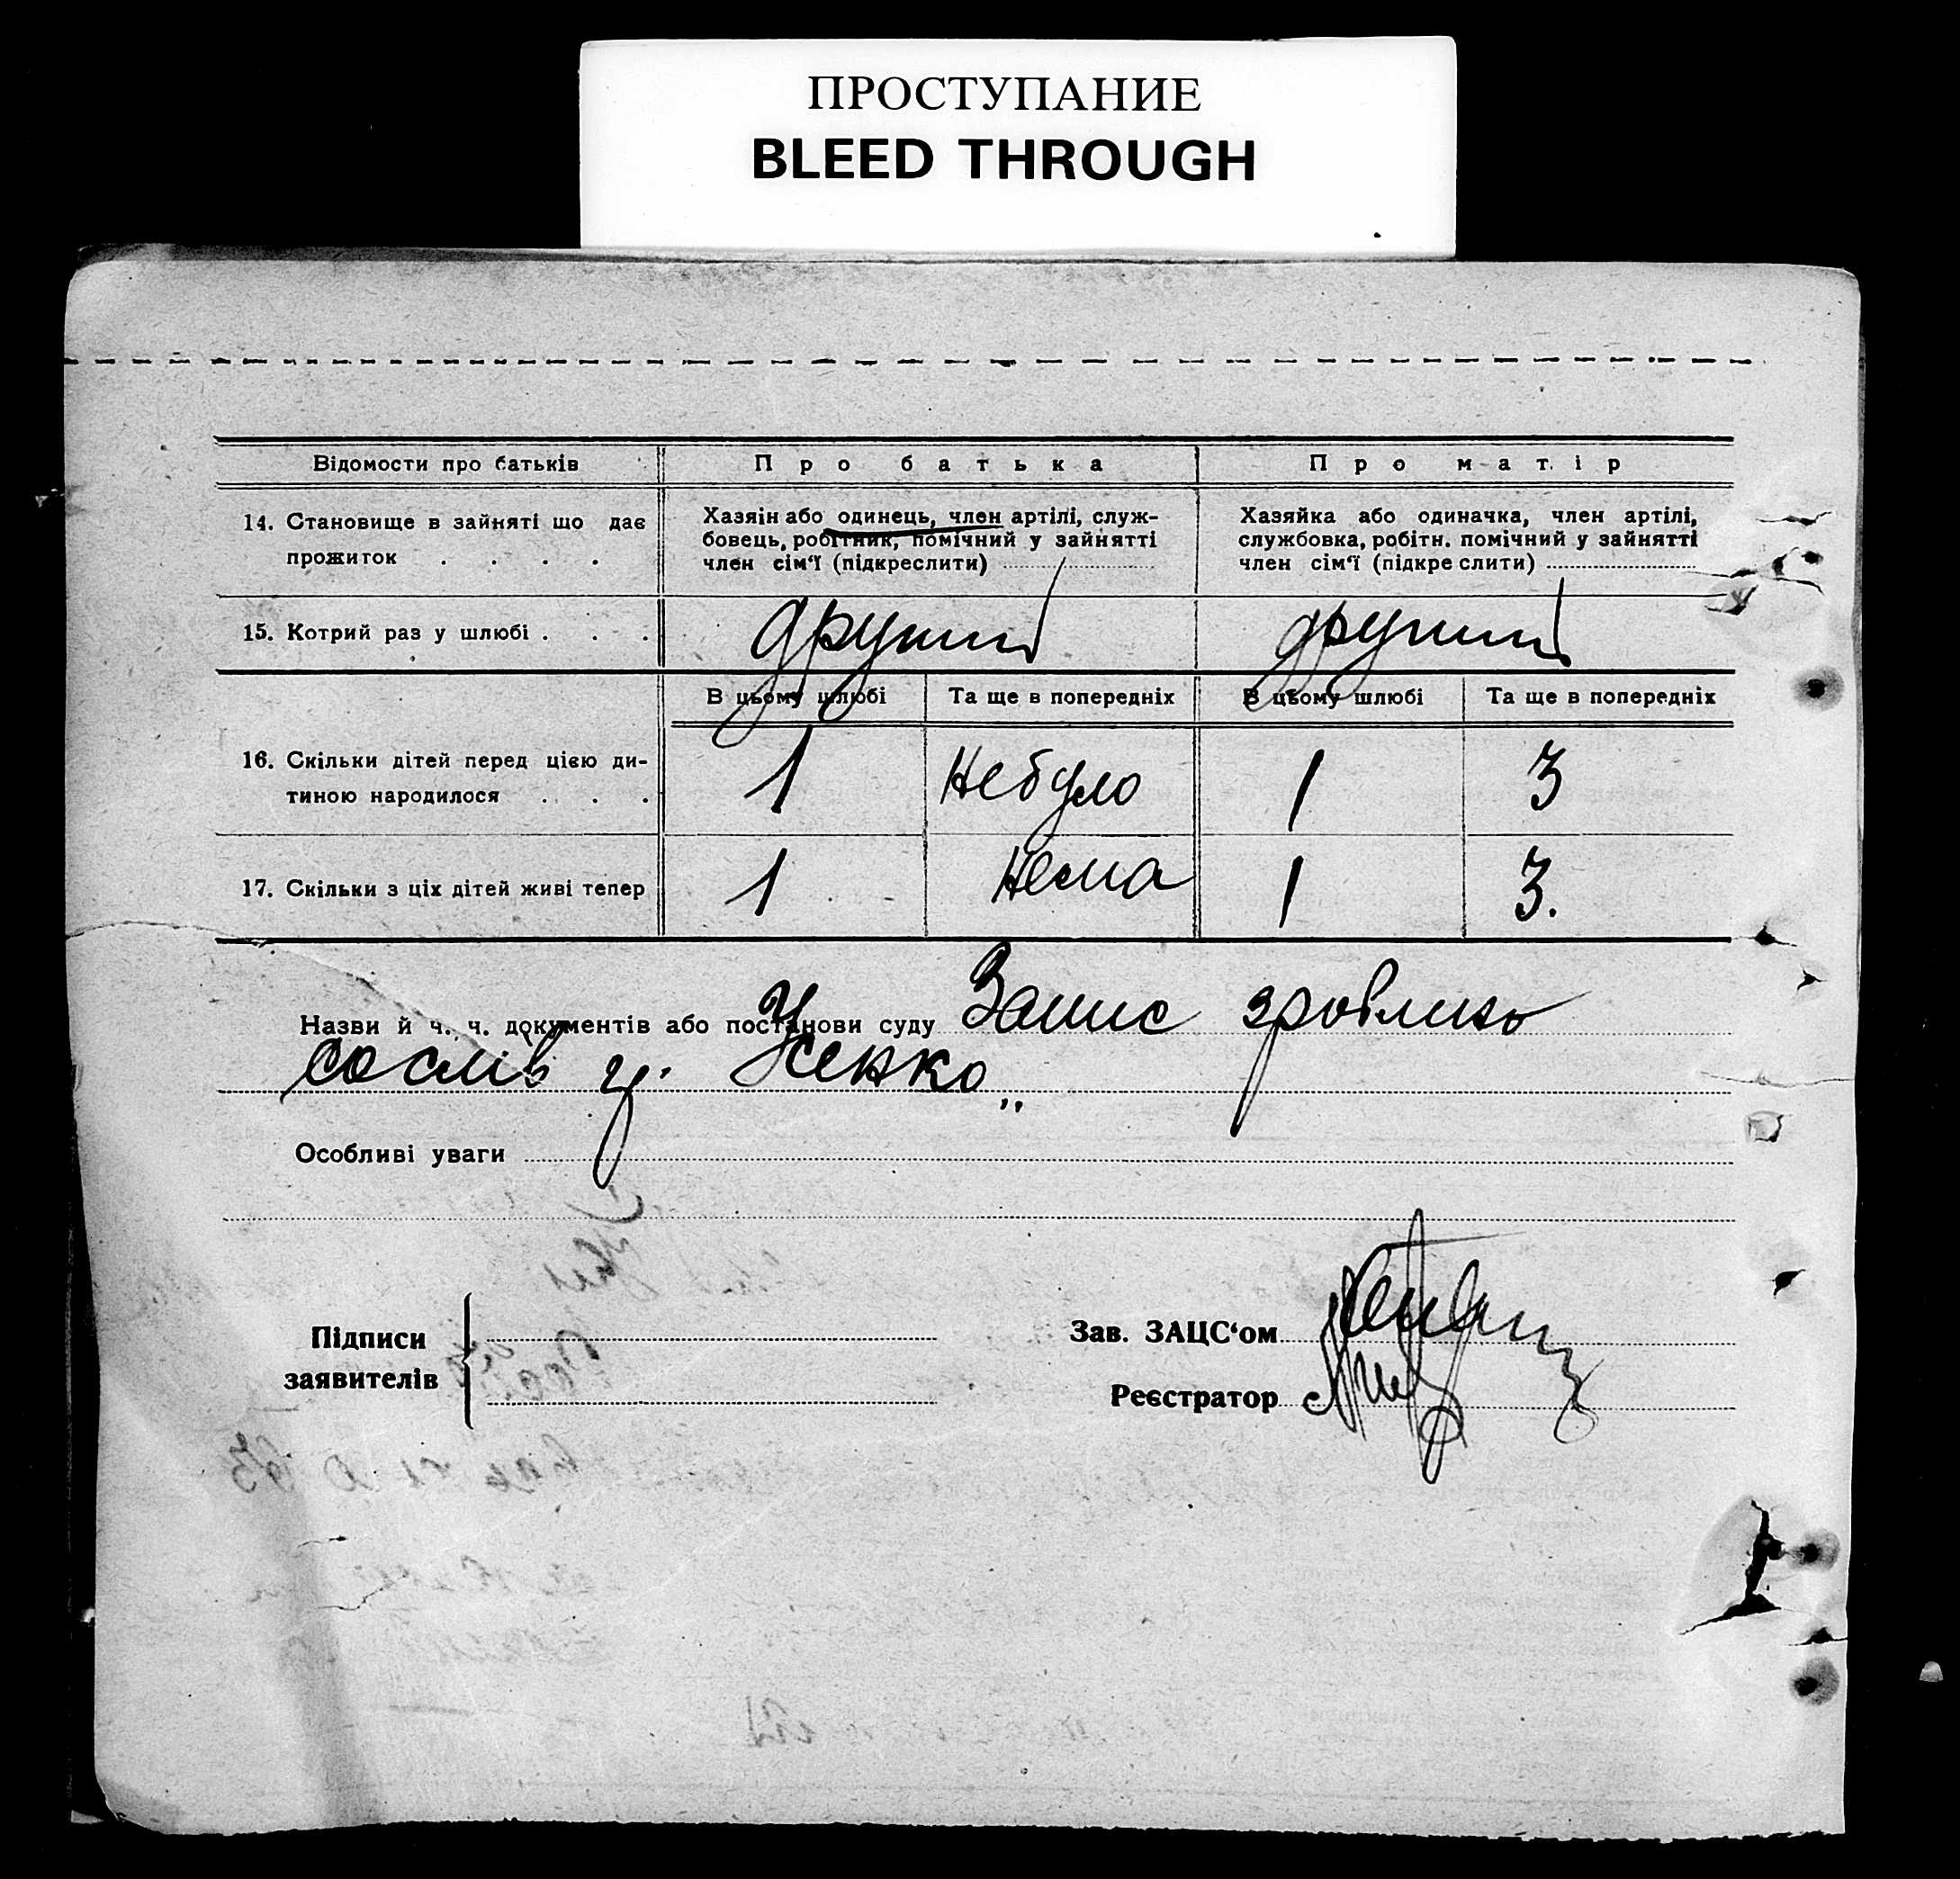 ПРОСТУПАНИЕ
BLEED THROUGH
Відомости про батьків
Про батька
Про матір
14. Становище в зайняті що дає
прожиток . . . .
Хазяін або одинець, член артілі, служ-
бовець, робітник, помічний у зайнятті
член сім‘ї (підкреслити)
Хазяйка або одиначка, член артілі,
службовка, робітн. помічний у зайнятті
член сім‘ї (підкреслити)
15. Котрий раз у шлюбі . . .
другий
другий
В цьому шлюбі
Та ще в попередніх
В цьому шлюбі
Та ще в попередніх
16. Скільки дітей перед цією ди-
тиною народилося . . .
1
Небуло
1
3
17. Скільки з ціх дітей живі тепер
1
Нема
1
3.
Назви й ч. ч. документів або постанови суду Запис зроблено
со слів г. Усенко
Особливі уваги
Підписи
заявителів
Зав. ЗАЦС‘ом
Реєстратор